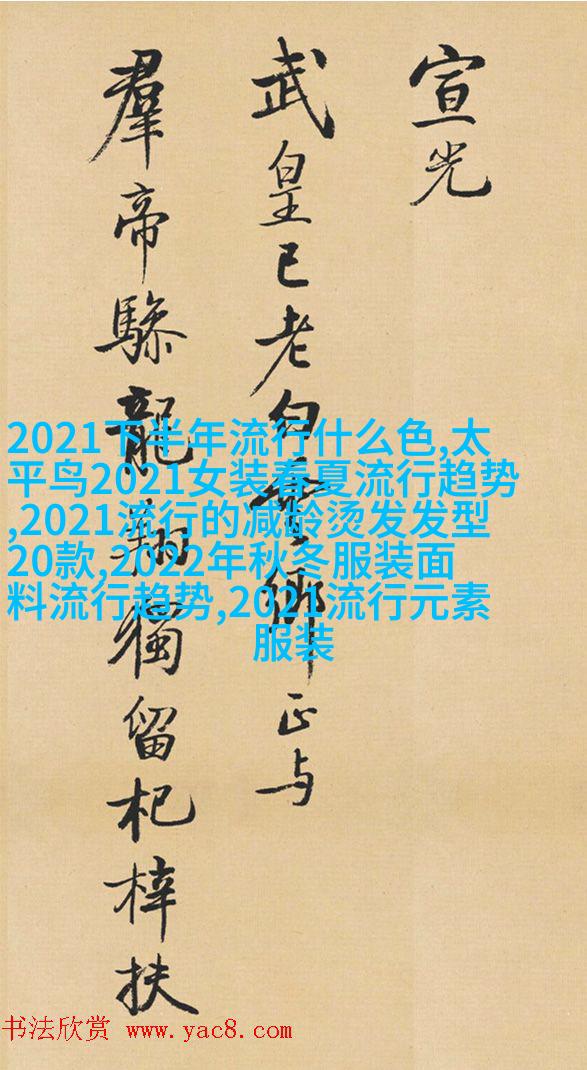 宣光
武皇已老白雲鄉正与
羣帝驂龍翔獨留杞梓扶
2021下半年流行什么色,太
平鸟2021女装春夏流行趋势
,2021流行的减龄烫发发型
20款,2022年秋冬服装面
料流行趋势,2021流行元素
服装
书法欣赏 www.yac8.com